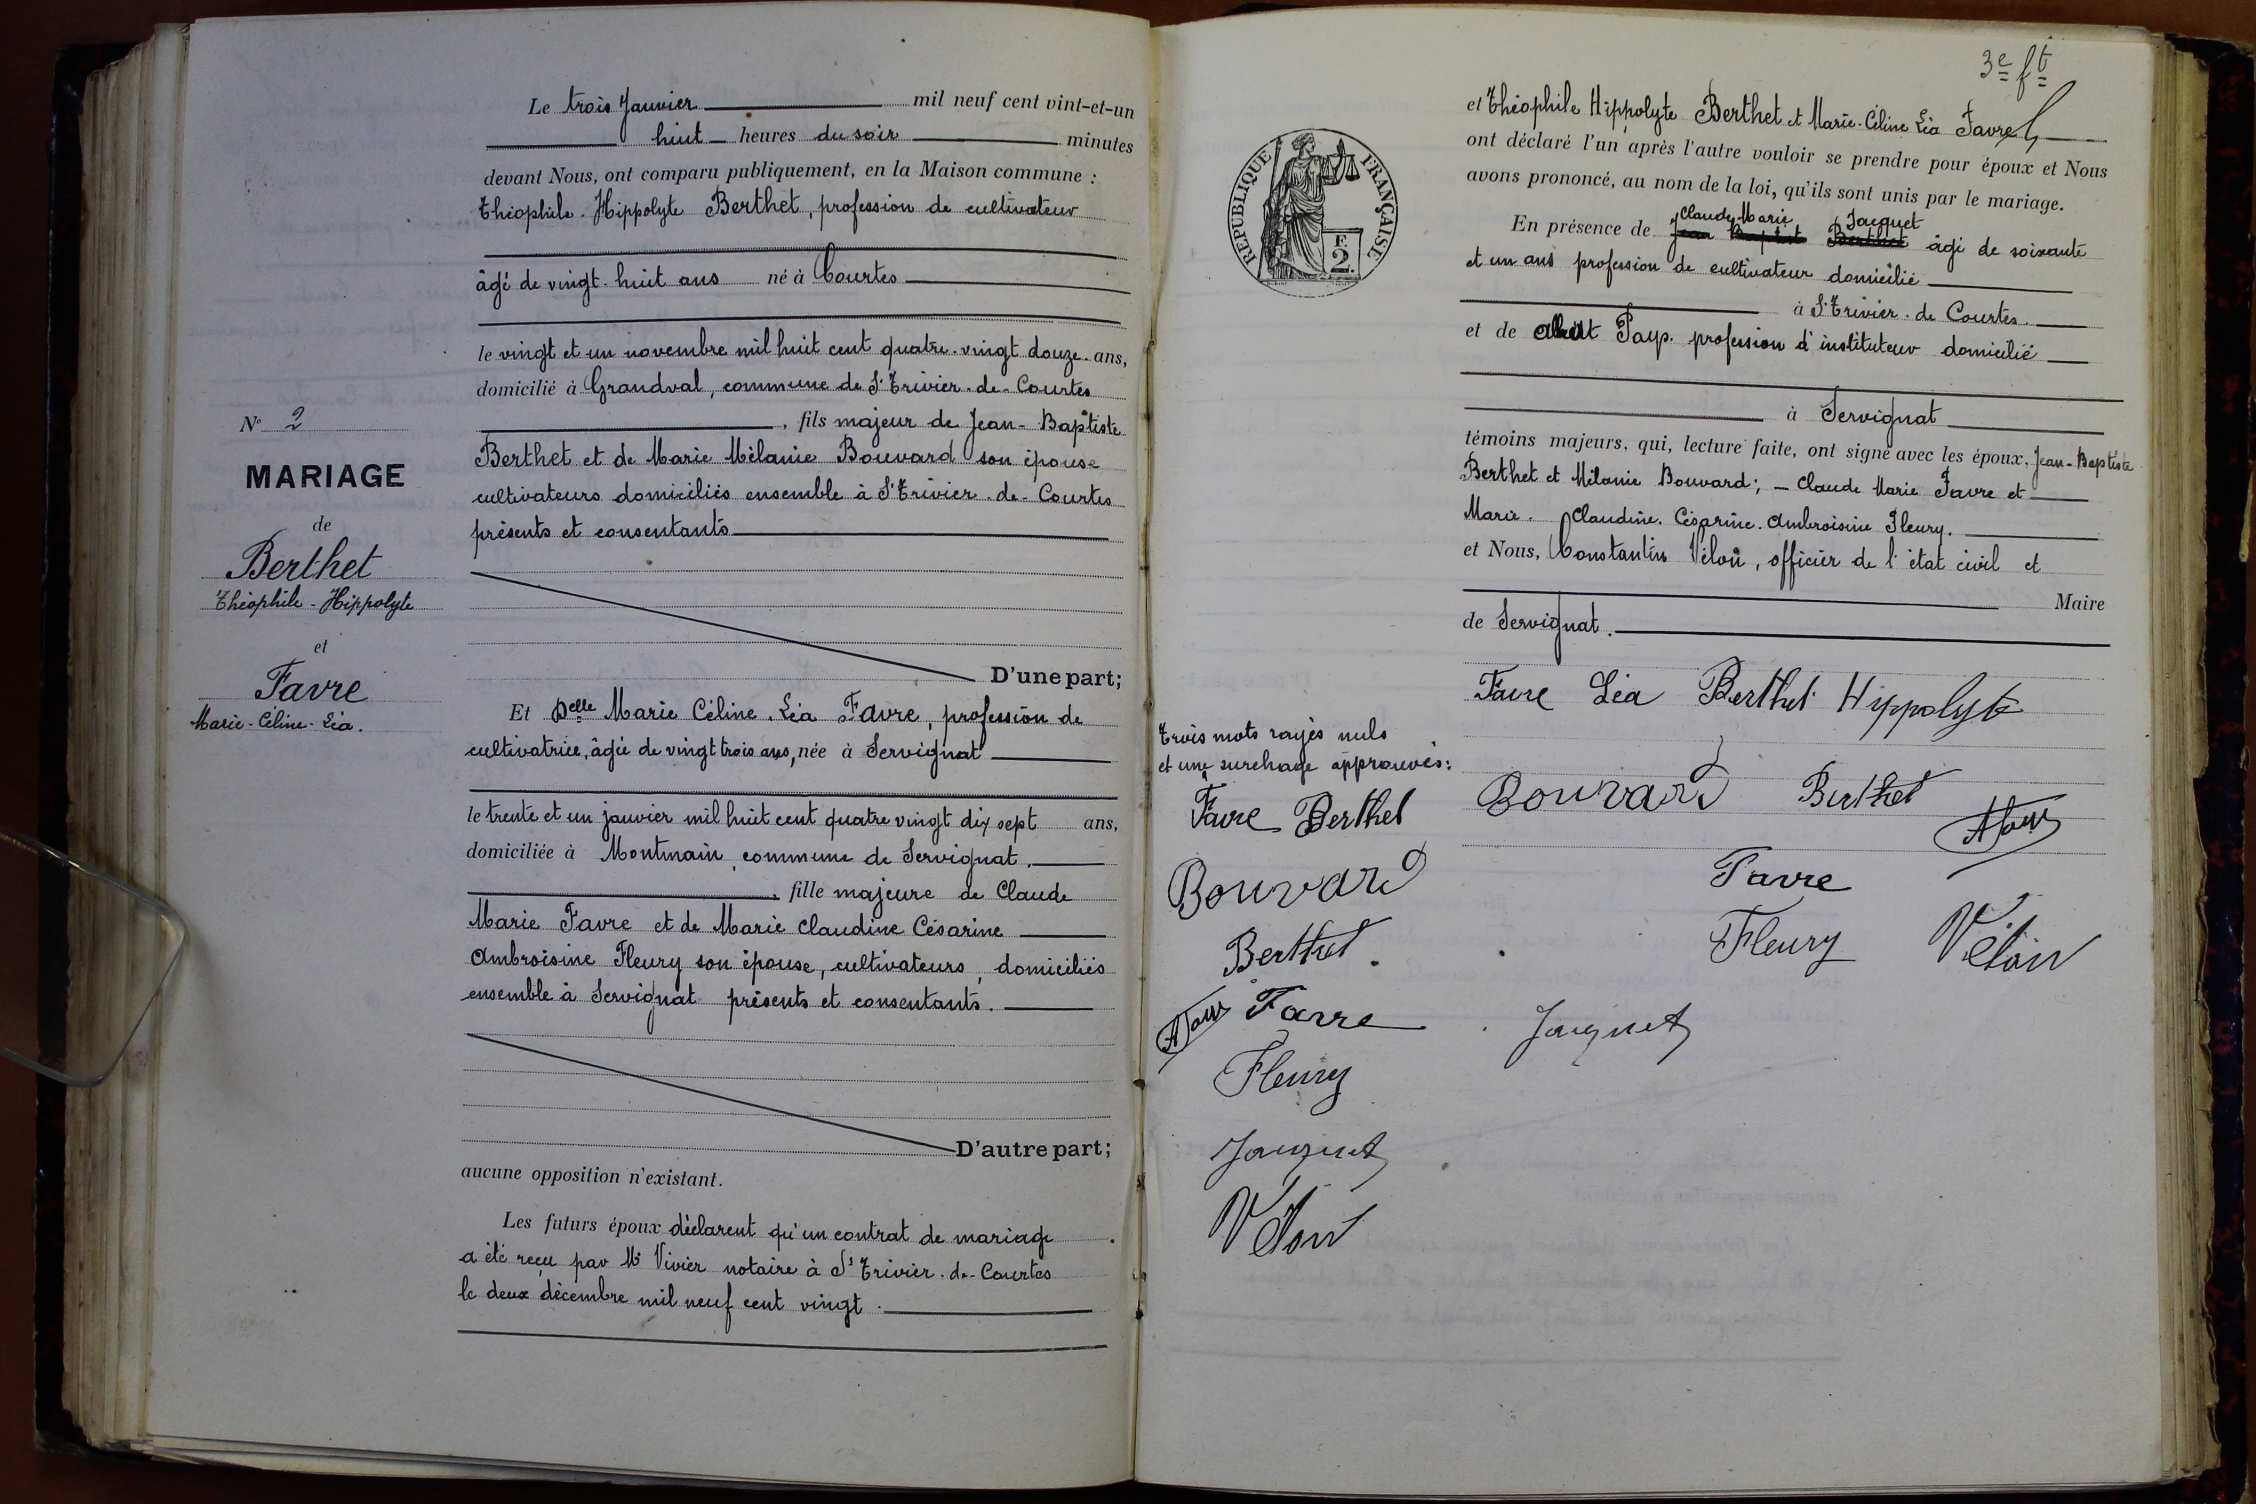 Le trois Janvier mil neuf cent vint-et-un
huit heures du soir minutes
devant Nous, ont comparu publiquement, en la Maison commune :
Théophile-Hippolyte Berthet, profession de cultivateur
âgé de vingt-huit ans né à Courtes
le vingt et un novembre mil huit cent quatre-vingt douze ans,
domicilié à Grandval, commune de St Trivier-de-Courtes
, fils majeur de Jean-Baptiste
Berthet et de Marie Mélanie Bouvard son épouse
cultivateurs domiciliés ensemble à St Trivier-de-Courtes
présents et consentants
D'une part;
Et Delle Marie Céline Léa Favre, profession de
cultivatrice, âgée de vingt trois ans, née à Servignat
le trente et un janvier mil huit cent quatre vingt dix sept ans,
domiciliée à Montmain, commune de Servignat.
, fille majeure de Claude
Marie Favre et de Marie Claudine Césarine
Ambroisine Fleury son épouse, cultivateurs, domiciliés
ensemble à Servignat présents et consentants.
D'autre part;
aucune opposition n'existant.
Les futurs époux déclarent qu'un contrat de mariage
a été reçu par Me Vivier notaire à St Trivier-de-Courtes
le deux décembre mil neuf cent vingt.
No 2
MARIAGE
de
Berthet
Théophile-Hippolyte
et
Favre
Marie-Céline-Léa.
3e ft
et Théophile Hippolyte Berthet et Marie-Céline Léa Favre
ont déclaré l'un après l'autre vouloir se prendre pour époux et Nous
avons prononcé, au nom de la loi, qu'ils sont unis par le mariage.
Claude-Marie Jacquet
En présence de Jean Baptiste Berthet âgé de soixante
et un ans profession de cultivateur domicilié
à St Trivier-de Courtes.
et de profession d'instituteur domicilié
à Servignat
témoins majeurs, qui, lecture faite, ont signé avec les époux, Jean-Baptiste
Berthet et Mélanie Bouvard; Claude Marie Favre et
Marie. Claudine. Césarine. Ambroisine Fleury.
et Nous, Constantin Vélon, officier de l'état civil et
Maire
de Servignat.
RÉPUBLIQUE FRANÇAISE
F.
2.
Favre Léa Berthet Hippolyte
Bouvard Berthet
Favre
Fleury Vélon
Jacquet
Trois mots rayés nuls
et une surchage approuvés:
Favre Berthet
Bouvard
Berthet
Favre
Fleury
Jacquet
Vélon